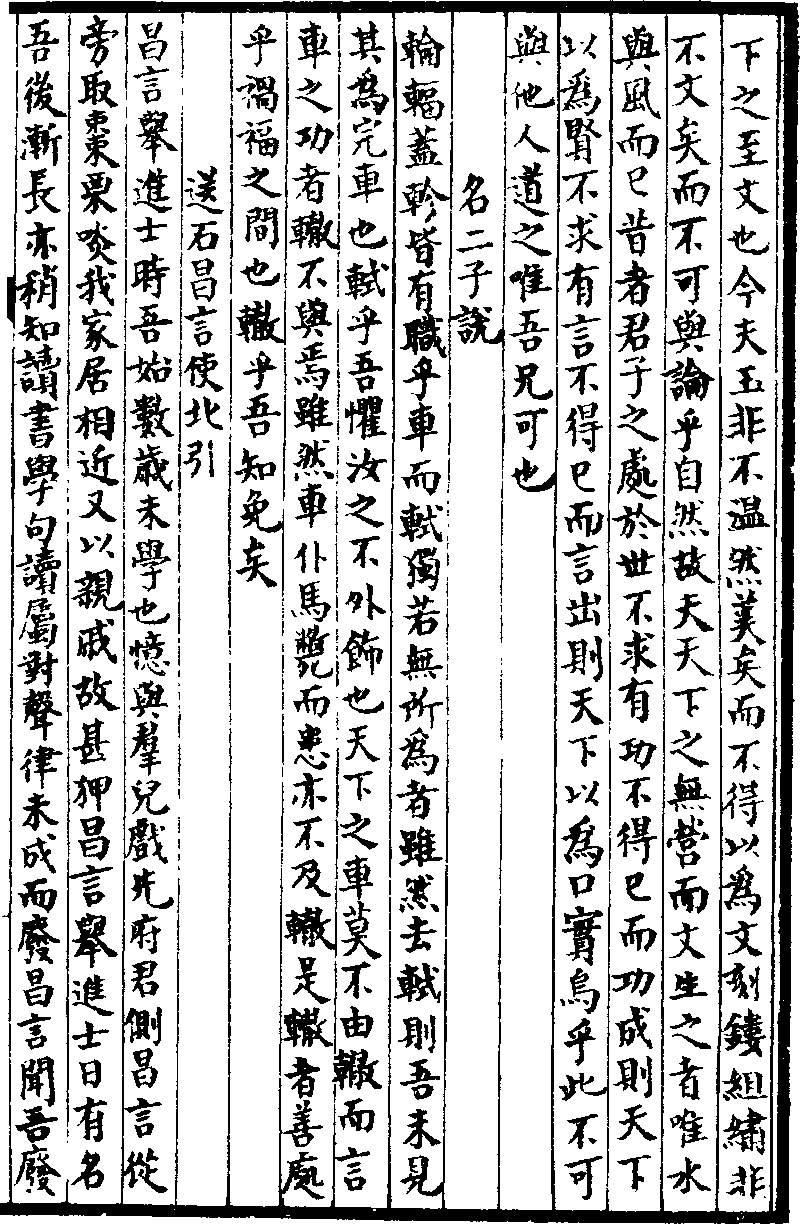 下之至文也今夫玉非不溫然美矣而不得以爲文刻鏤組繡非
不文矣而不可與論乎自然故夫天下之無營而文生之者唯水
與風而已昔者君子之處於世不求有功不得已而功成則天下
以爲賢不求有言不得已而言出則天下以爲口實烏乎此不可
與他人道之唯吾兄可也
名二子說
輪輻蓋軫皆有職乎車而軾獨若無所爲者雖然去軾則吾未見
其爲完車也軾乎吾懼汝之不外飾也天下之車莫不由轍而言
車之功者轍不與焉雖然車仆馬斃而患亦不及轍是轍者善處
乎禍福之間也轍乎吾知免矣
送石昌言使北引
昌言舉進士時吾始數歲未學也憶與羣兒戲先府君側昌言從
旁取棗栗啖我家居相近又以親戚故甚狎昌言舉進士日有名
吾後漸長亦稍知讀書學句讀屬對聲律未成而廢昌言聞吾廢